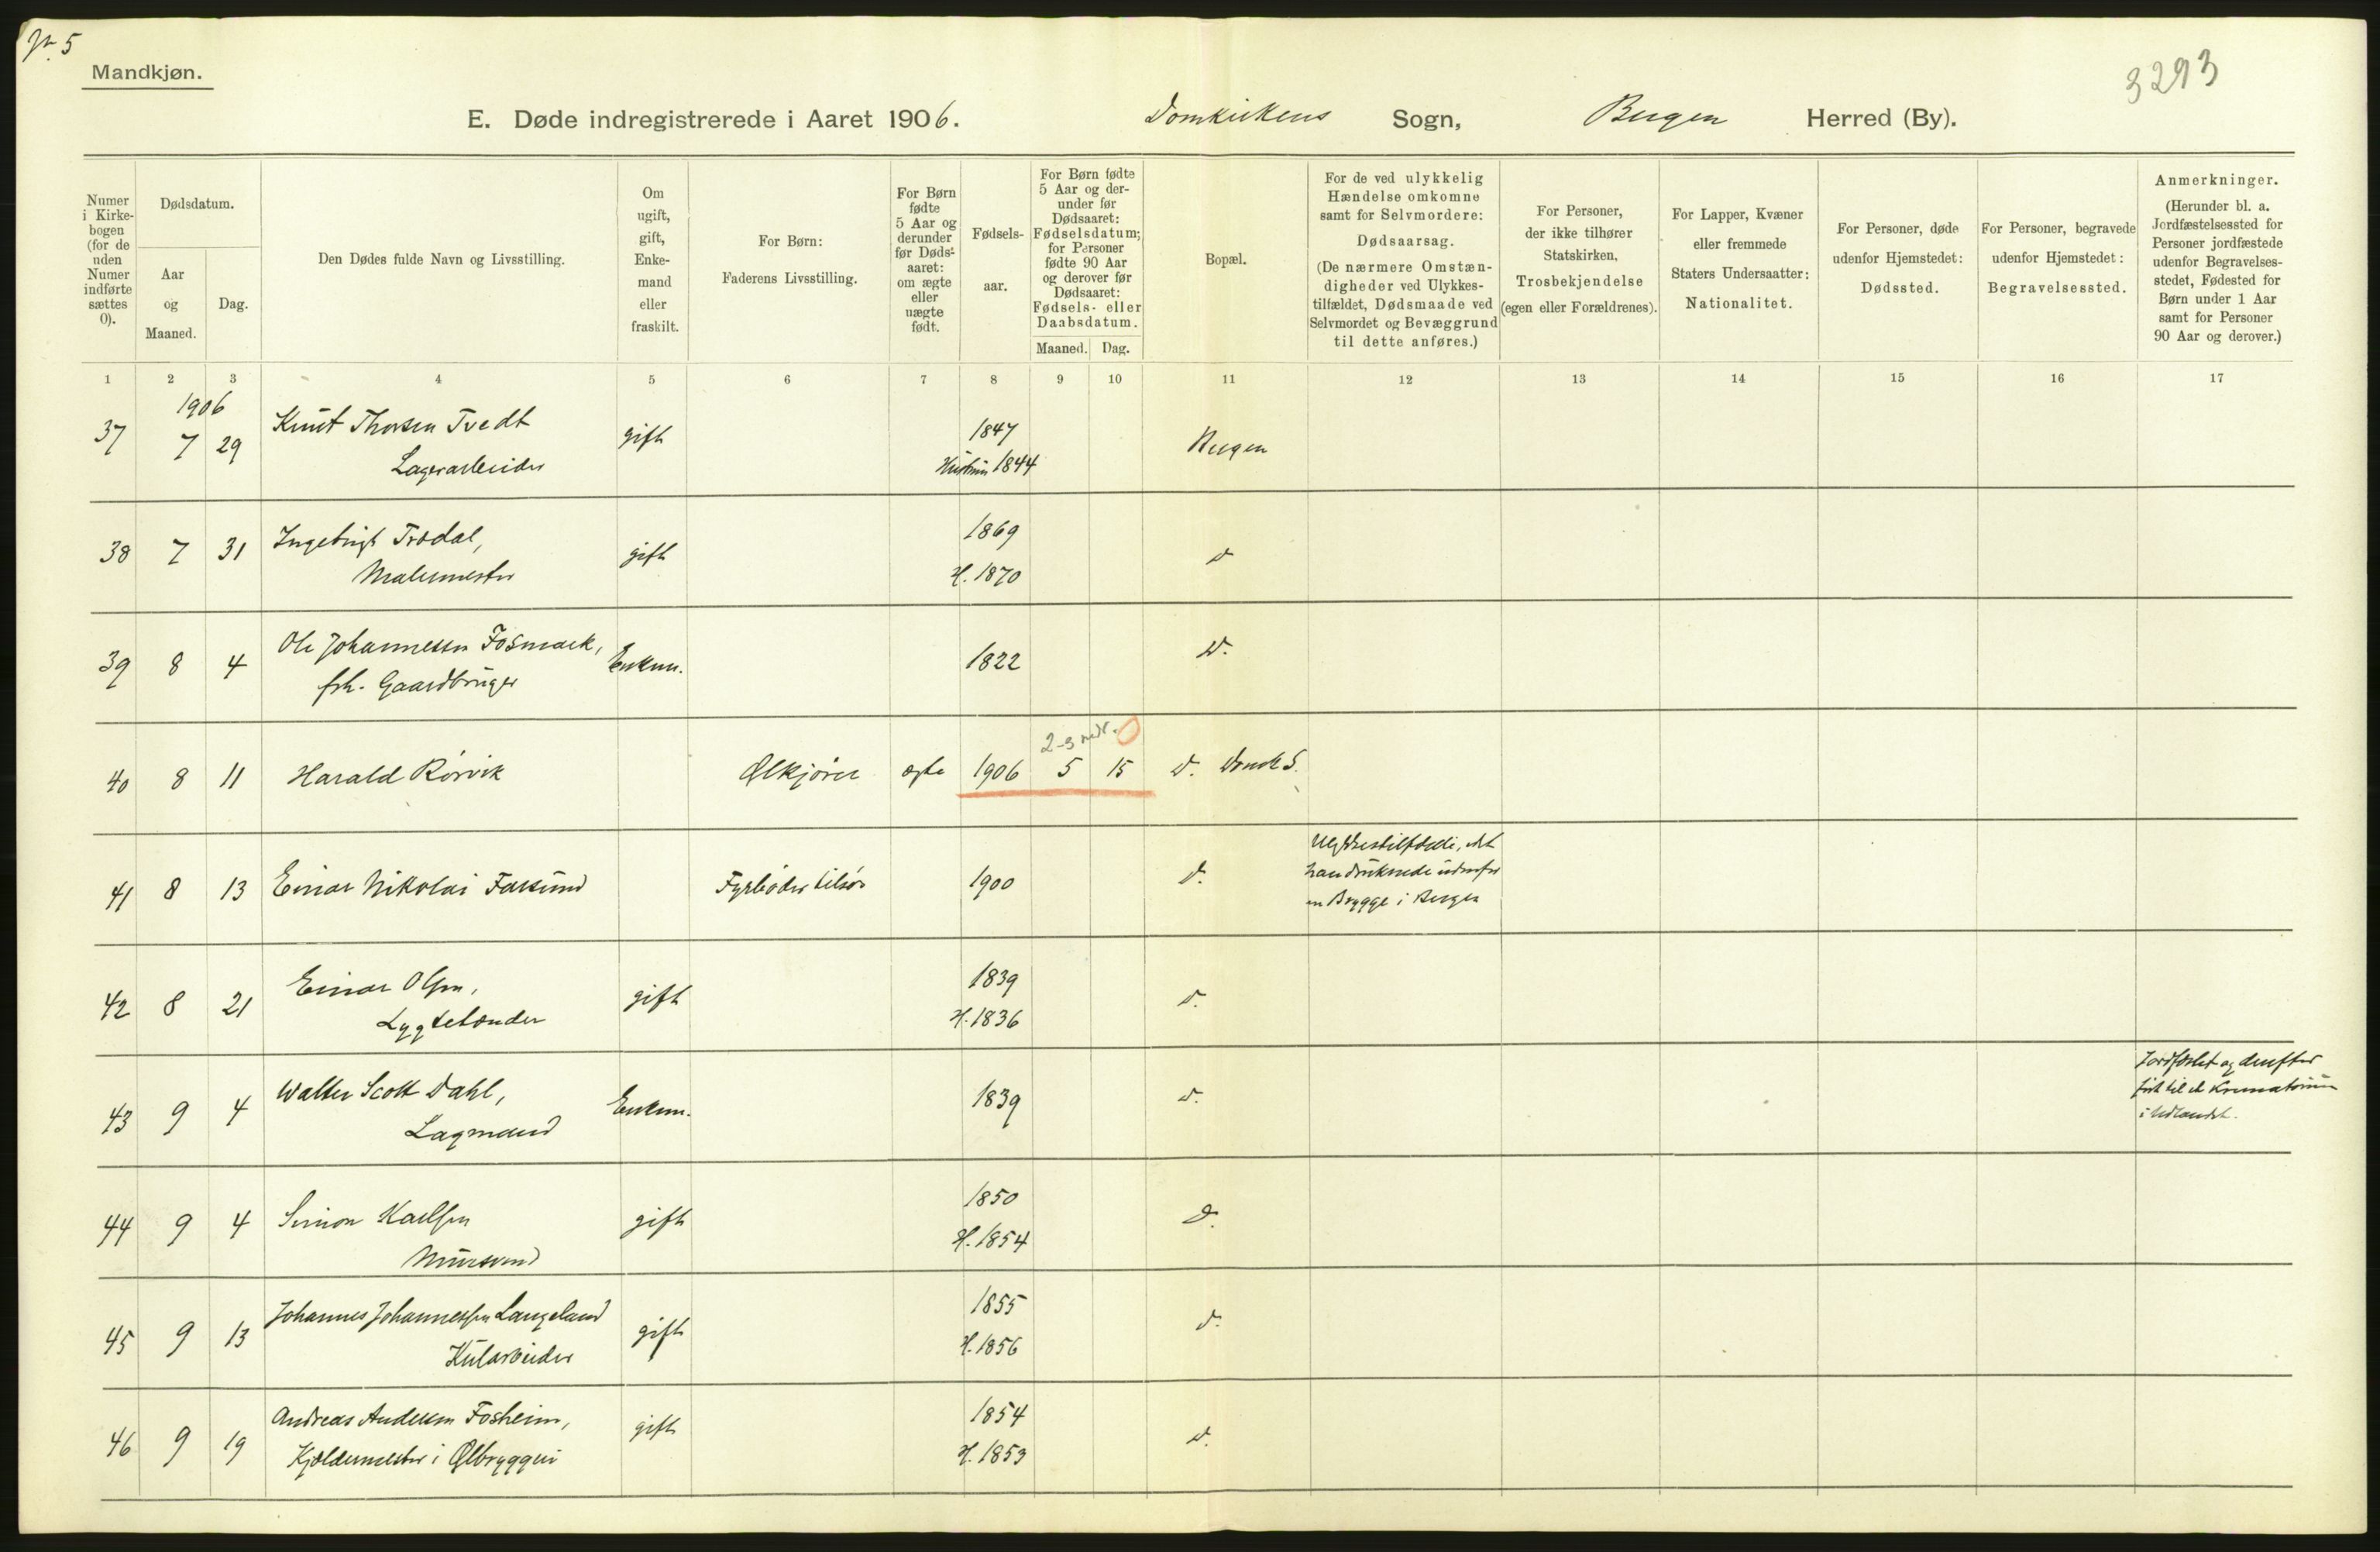 № 5
Mandkjøn.
3293
E. Døde indregistrerede i Aaret 1906. Domkirkens Sogn, Bergen Herred (By).
Numer i Kirkebogen (for de uden Numer indførte sættes 0).
Dødsdatum.
Aar og Maaned.
Dag.
Den Dødes fulde Navn og Livsstilling.
Om ugift, gift, Enkemand eller fraskilt.
For Børn: Faderens Livsstilling.
For Børn fødte 5 Aar og derunder før Dødsaaret: om ægte eller uægte født.
Fødselsaar.
For Børn fødte 5 Aar og derunder før Dødsaaret: Fødselsdatum; for Personer fødte 90 Aar og derover før Dødsaaret: Fødsels- eller Daabsdatum.
Maaned. Dag.
Bopæl.
For de ved ulykkelig Hændelse omkomne samt for Selvmordere: Dødsaarsag. (De nærmere Omstændigheder ved Ulykkestilfældet, Dødsmaade ved Selvmordet og Bevæggrund til dette anføres.)
For Personer, der ikke tilhører Statskirken, Trosbekjendelse (egen eller Forældrenes).
For Lapper, Kvæner eller fremmede Staters Undersaatter: Nationalitet.
For Personer, døde udenfor Hjemstedet: Dødssted.
For Personer, begravede udenfor Hjemstedet: Begravelsessted.
Anmerkninger. (Herunder bl. a. Jordfæstelsessted for Personer jordfæstede udenfor Begravelsesstedet, Fødested for Børn under 1 Aar samt for Personer 90 Aar og derover.)
1 2 3 4 5 6 7 8 9 10 11 12 13 14 15 16 17
1906
37 7 29 Knut Thorsen Tvedt gift 1847 Bergen
Lagerarbeider Hustru 1844
38 7 31 Ingebrigt Trædal, gift 1869 d
Malermester H. 1870
39 8 4 Ole Johannessen Fosmark, Enkem. 1822 D.
frh. Gaardbruger
2-3 mdr. 0
40 8 11 Harald Rörvik Ølkjører ægte 1906 5 15 D.
41 8 13 Einar Nikolai Farsund Fyrbøder tilsøs 1900 d. Ulykkestilfælde, idet
han druknede udenfor
en Brygge i Bergen
42 8 21 Einar Olsen, gift 1839 D.
Lygtetænder H. 1836
43 9 4 Walter Scott Dahl, Enkem. 1839 D. Jordfæstet og derefter
Lagmand ført til et Krematorium
i Udlandet.
44 9 4 Simon Karlsen gift 1850 D.
Murersvend H. 1854
45 9 13 Johannes Johannessen Langeland gift 1855 d.
Kularbeider H. 1856
46 9 19 Andreas Andersen Fosheim, gift 1854 D.
Kjeldermester i Ølbryggeri H. 1853